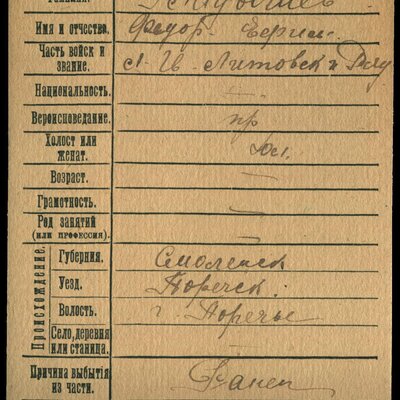 Имя и отчество. Федор
Часть войск и звание. Л. Гв. Литовск п Ряд
Национальность. —
Вероисповедание. пр
Холост или женат.
Возраст. —
Грамотность. —
Род занятий (или профессия). —
Происхождение.
Губерния. Смоленск
Уезд. Поречск.
Волость. г. Поречье
Село, деревня или станица. —
Причина выбытия из части. Ранен